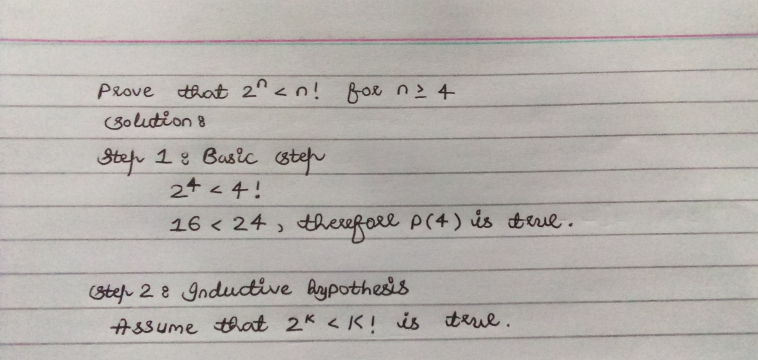 Prove that 2ⁿ < n! for n ≥ 4
Solution :
Step 1 : Basic step
2⁴ < 4!
16 < 24, therefore P(4) is true.
Step 2 : Inductive hypothesis
Assume that 2ᴷ < K! is true.